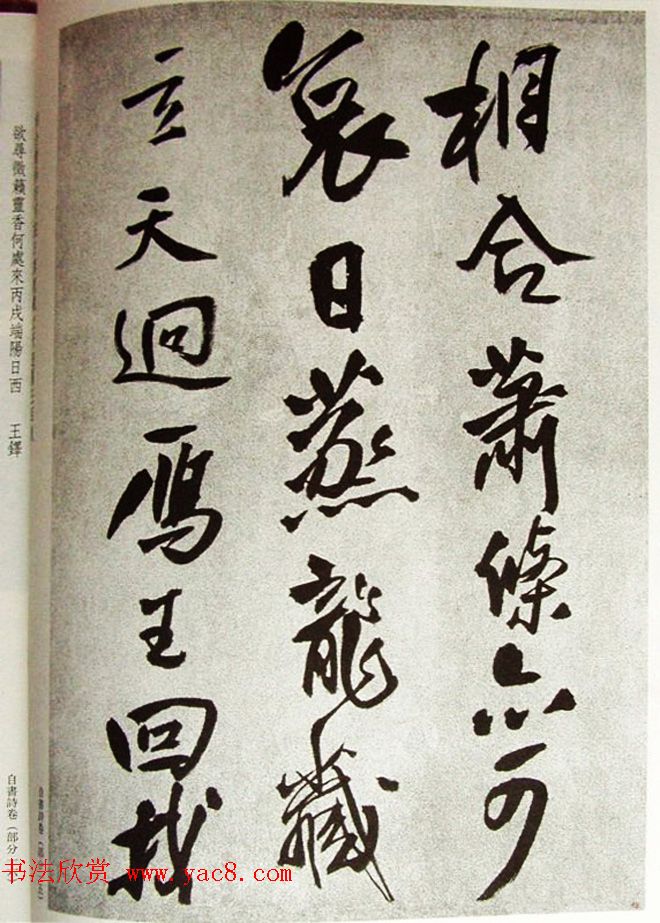 相合蕭條亦可
哀日蒸龍藏
立天迴雁王回哉
欲尋微籟靈香何處來丙戌端陽日西 王鐸
自書詩卷（部分
自書詩卷
书法欣赏 www.yac8.com